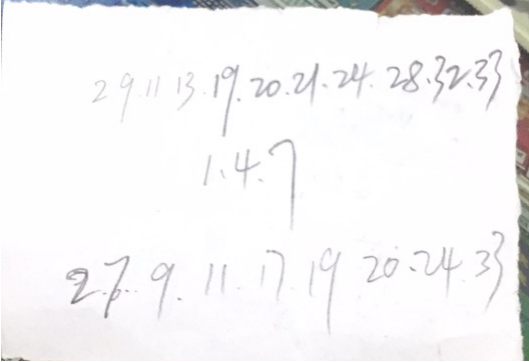 2 9.11 13.19.20.21.24.28.32.33
1.4.7
2.7.9.11.17.19 20.24.33